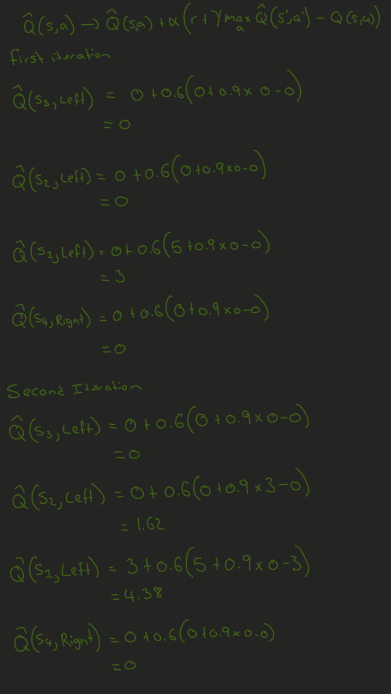 Q̂(s,a) → Q̂(s,a) + α(r + γ max_a Q̂(s',a') - Q(s,a))
first iteration
Q̂(S₃, Left) = 0 + 0.6(0 + 0.9 × 0 - 0)
= 0
Q̂(S₂, Left) = 0 + 0.6(0 + 0.9 × 0 - 0)
= 0
Q̂(S₂, Left) = 0 + 0.6(5 + 0.9 × 0 - 0)
= 3
Q̂(S₄, Right) = 0 + 0.6(0 + 0.9 × 0 - 0)
= 0
Second Iteration
Q̂(S₃, Left) = 0 + 0.6(0 + 0.9 × 0 - 0)
= 0
Q̂(S₂, Left) = 0 + 0.6(0 + 0.9 × 3 - 0)
= 1.62
Q̂(S₁, Left) = 3 + 0.6(5 + 0.9 × 0 - 3)
= 4.38
Q̂(S₄, Right) = 0 + 0.6(0 + 0.9 × 0 - 0)
= 0